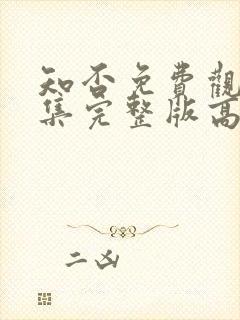 知否免費觀
集完整版高
二凶